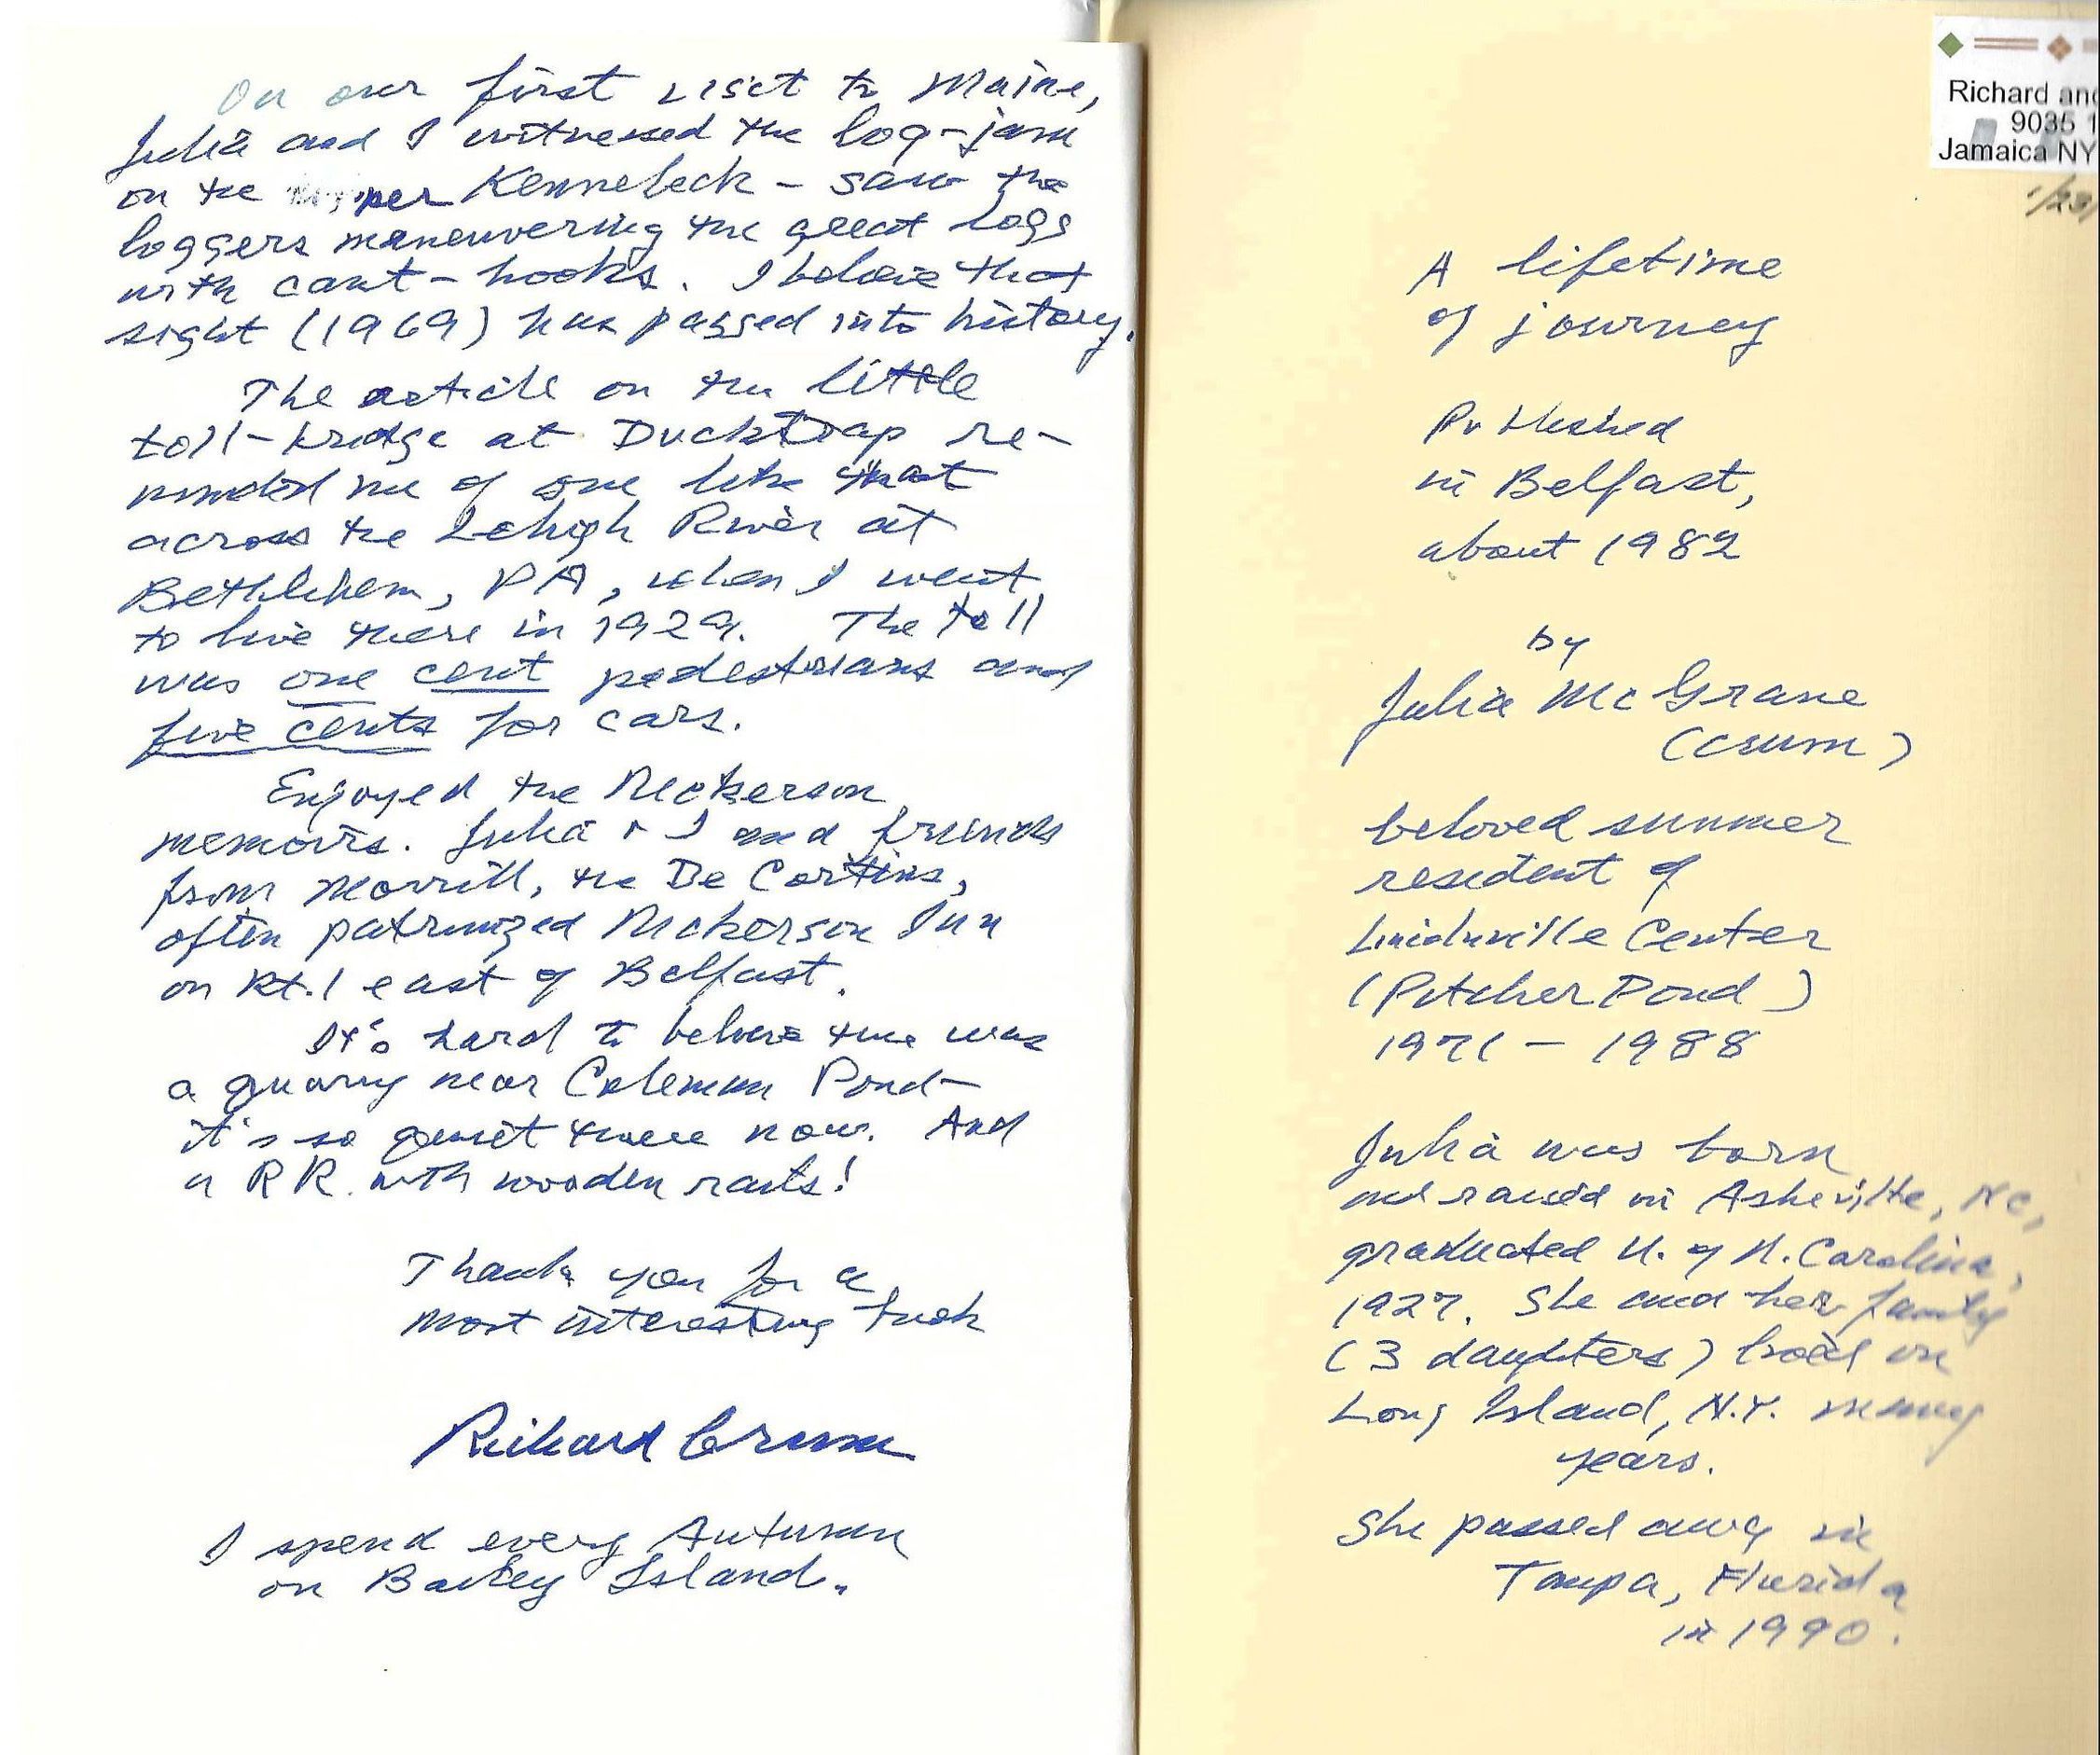 On our first visit to Maine,
Julia and I witnessed the log-jam
on the upper Kennebeck - saw the
loggers maneuvering the great logs
with cant-hooks. I believe that
sight (1969) has passed into history.
The article on the little
toll-bridge at Ducktrap re-
minded me of one like that
across the Lehigh River at
Bethlehem, PA, when I went
to live there in 1929. The toll
was one cent pedestrians and
five cents for cars.
Enjoyed the Nickerson
memoirs. Julia + I and friends
from Morrill, the De Cortins,
often patronized Nickerson Inn
on Rt. 1 east of Belfast.
It's hard to believe there was
a quarry near Coleman Pond-
it's so quiet there now. And
a RR. with wooden rails!
Thank you for a
most interesting book
Richard Crum
I spend every Autumn
on Bailey Island.
Richard and
9035 1
Jamaica NY
1/23/
A lifetime
of journey
Published
in Belfast,
about 1982
by
Julia McGrane
(Crum)
beloved summer
resident of
Lincolnville Center
(Pitcher Pond)
1971 - 1988
Julia was born
and raised in Asheville, NC,
graduated U. of N. Carolina,
1927. She and her family
(3 daughters) lived on
Long Island, N.Y. many
years.
She passed away in
Tampa, Florida
in 1990.